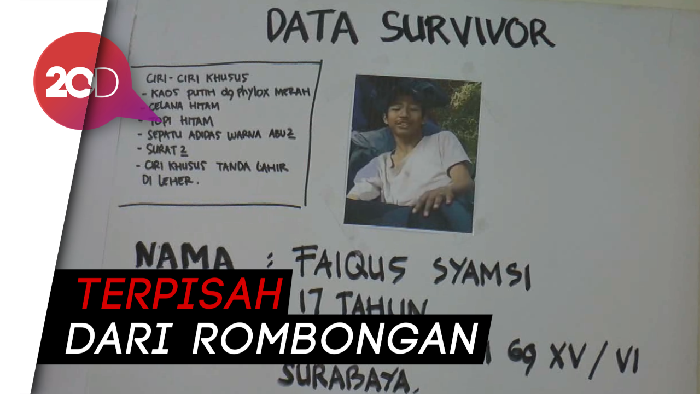 DATA SURVIVOR
20D
CIRI-CIRI KHUSUS
- KAOS PUTIH dg Phylox MERAH
- CELANA HITAM
- TOPI HITAM
- SEPATU ADIDAS WARNA ABU2
- SURAT2
- CIRI KHUSUS TANDA LAHIR
DI LEHER.
NAMA : FAIQUS SYAMSI
17 TAHUN
69 XV/VI
SURABAYA.
TERPISAH
DARI ROMBONGAN